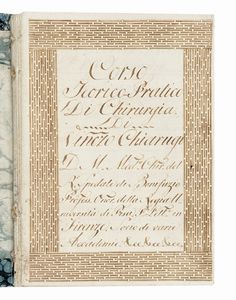 Corso
Teorico Pratico
Di Chirurgia.
di
Vincenzo Chiarugi
D. M. Med. Chir. del
R. Spedale di Bonifazio
Profes. Onor. della Regia U
niversità di Pisa, in
Firenze, Socio di varie
Accademie &c &c &c.